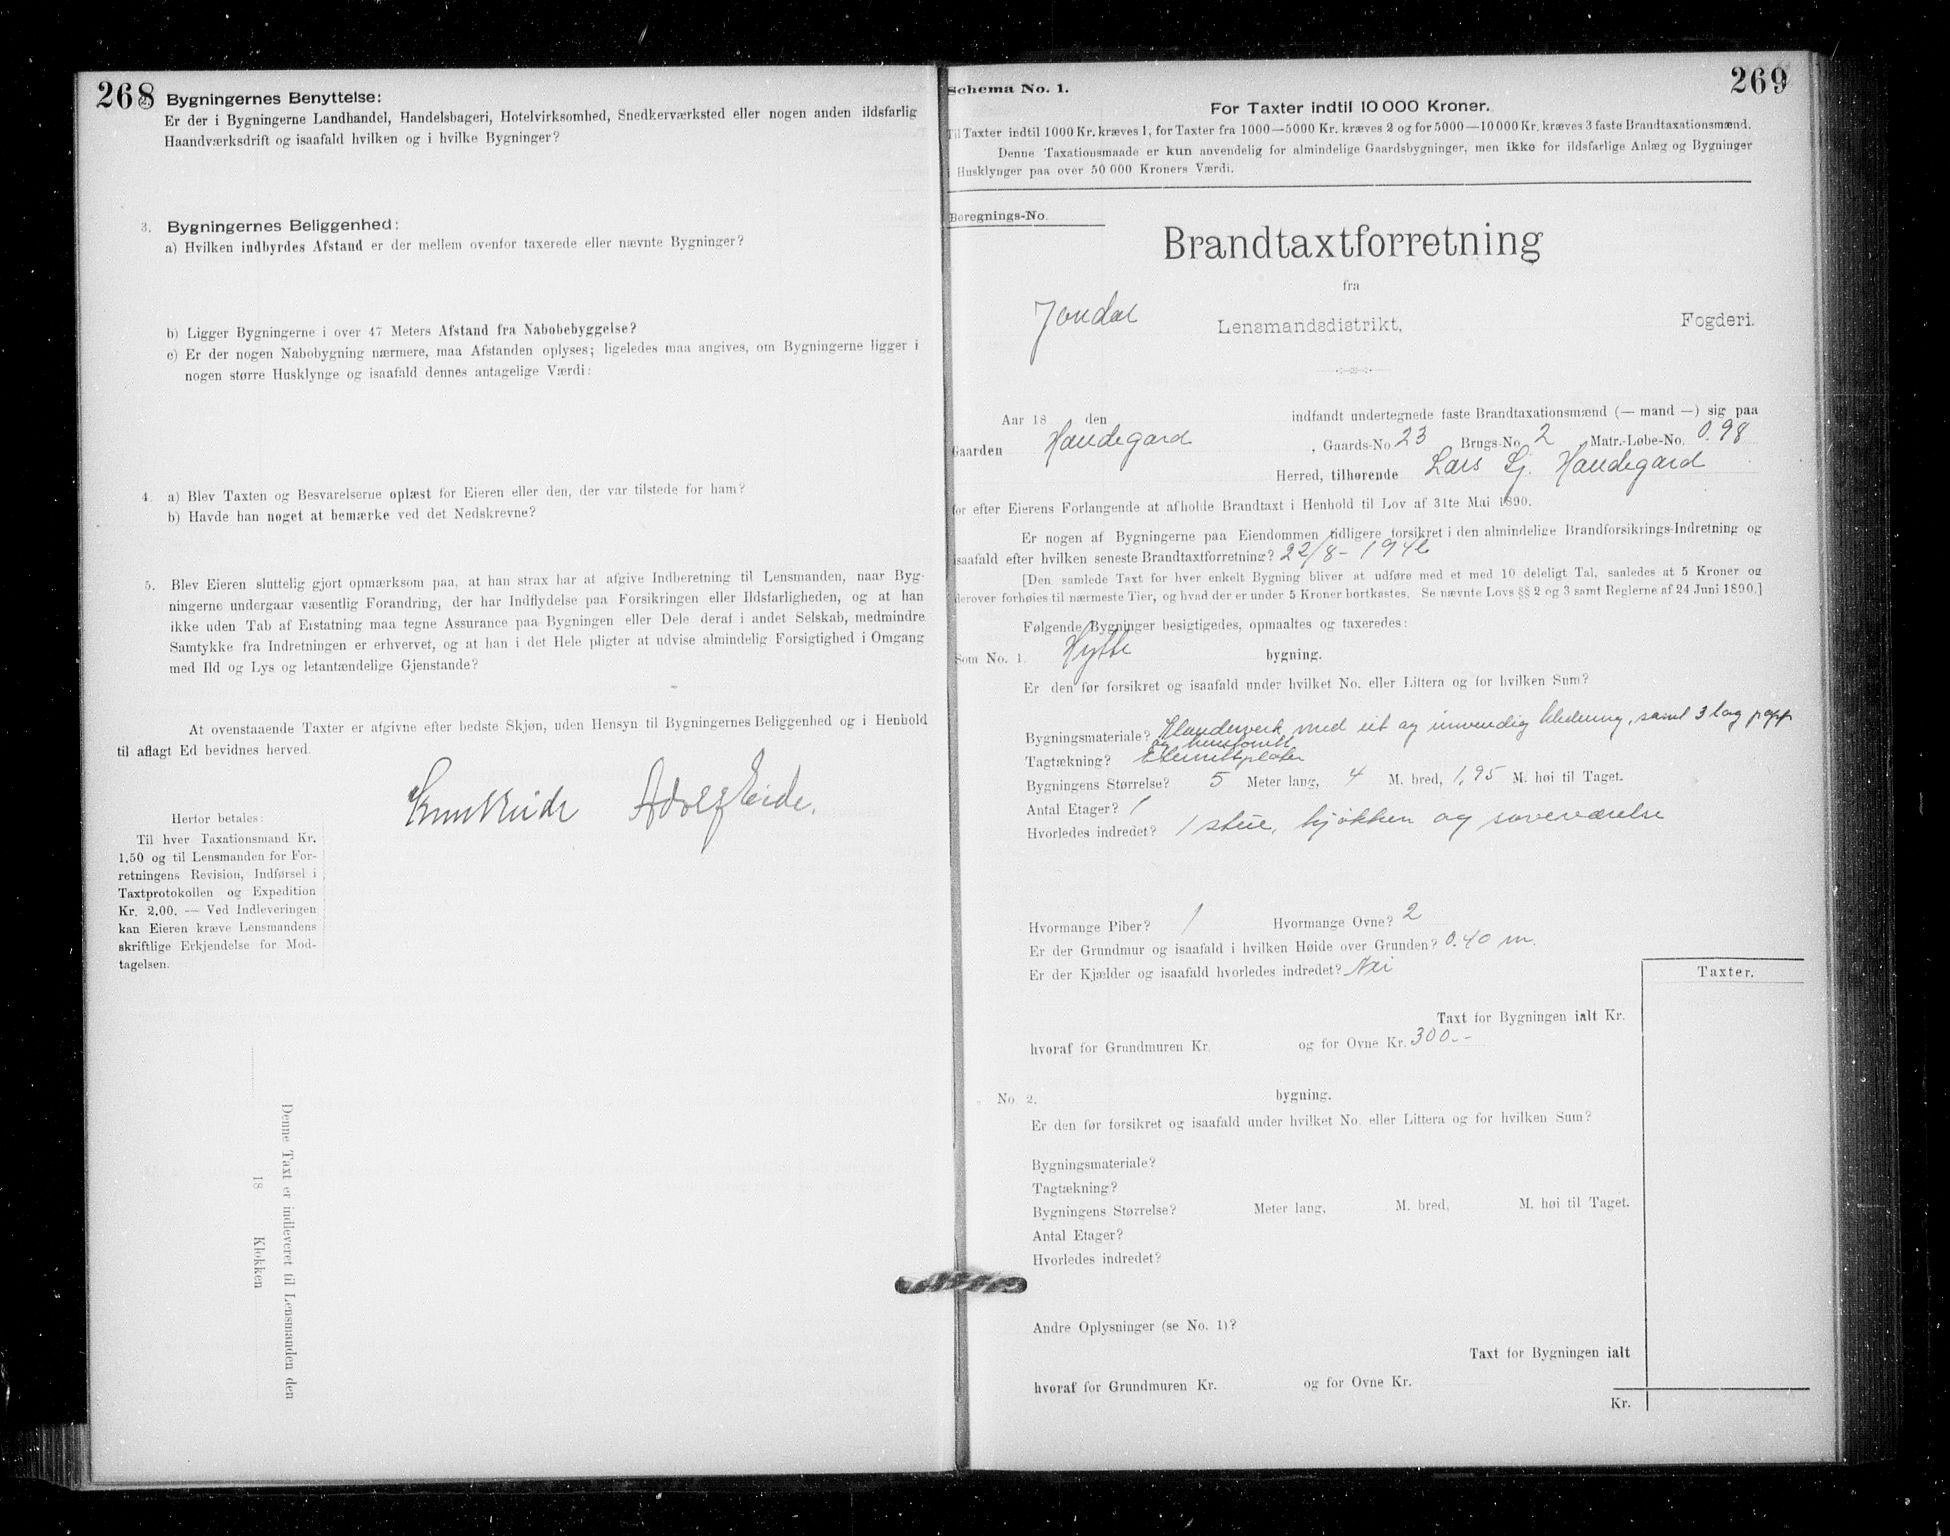 268
2. Bygningernes Benyttelse:
Er der i Bygningerne Landhandel, Handelsbageri, Hotelvirksomhed, Snedkerværksted eller nogen anden ildsfarlig
Haandværksdrift og isaafald hvilken og i hvilke Bygninger?
3. Bygningernes Beliggenhed:
a) Hvilken indbyrdes Afstand er der mellem ovenfor taxerede eller nævnte Bygninger?
b) Ligger Bygningerne i over 47 Meters Afstand fra Nabobebyggelse?
c) Er der nogen Nabobygning nærmere, maa Afstanden oplyses; ligeledes maa angives, om Bygningerne ligger i
nogen større Husklynge og isaafald dennes antagelige Værdi:
4. a) Blev Taxten og Besvarelserne oplæst for Eieren eller den, der var tilstede for ham?
b) Havde han noget at bemærke ved det Nedskrevne?
5. Blev Eieren sluttelig gjort opmærksom paa, at han strax har at afgive Indberetning til Lensmanden, naar Byg-
ningerne undergaar væsentlig Forandring, der har Indflydelse paa Forsikringen eller Ildsfarligheden, og at han
ikke uden Tab af Erstatning maa tegne Assurance paa Bygningen eller Dele deraf i andet Selskab, medmindre
Samtykke fra Indretningen er erhvervet, og at han i det Hele pligter at udvise almindelig Forsigtighed i Omgang
med Ild og Lys og letantændelige Gjenstande?
At ovenstaaende Taxter er afgivne efter bedste Skjøn, uden Hensyn til Bygningernes Beliggenhed og i Henhold
til aflagt Ed bevidnes herved.
Knut Eide Adolf Eide.
Herfor betales:
Til hver Taxationsmand Kr.
1,50 og til Lensmanden for For-
retningens Revision, Indførsel i
Taxtprotokollen og Expedition
Kr. 2,00. — Ved Indleveringen
kan Eieren kræve Lensmandens
skriftlige Erkjendelse for Mod-
tagelsen.
Denne Taxt er indleveret til Lensmanden den
18 Klokken
269
Schema No. 1.
For Taxter indtil 10 000 Kroner.
Til Taxter indtil 1000 Kr. kræves 1, for Taxter fra 1000—5000 Kr. kræves 2 og for 5000—10000 Kr. kræves 3 faste Brandtaxationsmænd.
Denne Taxationsmaade er kun anvendelig for almindelige Gaardsbygninger, men ikke for ildsfarlige Anlæg og Bygninger
i Husklynger paa over 50 000 Kroners Værdi.
Beregnings-No.
Brandtaxtforretning
fra
Jondal Lensmandsdistrikt, Fogderi.
Aar 18 den indfandt undertegnede faste Brandtaxationsmænd (— mand —) sig paa
Gaarden Handegard, Gaards-No 23 Brugs-No 2 Matr.-Løbe-No. 0.98
Herred, tilhørende Lars Lj. Handegard
for efter Eierens Forlangende at afholde Brandtaxt i Henhold til Lov af 31te Mai 1890.
Er nogen af Bygningerne paa Eiendommen tidligere forsikret i den almindelige Brandforsikrings-Indretning og
isaafald efter hvilken seneste Brandtaxtforretning? 22/8 - 1946
[Den samlede Taxt for hver enkelt Bygning bliver at udføre med et med 10 deleligt Tal, saaledes at 5 Kroner og
derover forhøies til nærmeste Tier, og hvad der er under 5 Kroner bortkastes. Se nævnte Lovs §§ 2 og 3 samt Reglerne af 24 Juni 1890.]
Følgende Bygninger besigtigedes, opmaaltes og taxeredes:
Som No. 1. Hytte bygning.
Er den før forsikret og isaafald under hvilket No. eller Littera og for hvilken Sum?
Bygningsmateriale? med ut og innvendig kledning, samt 3 lag papp
og
Tagtækning? Eternittplater
Bygningens Størrelse? 5 Meter lang, 4 M. bred, 1,95 M. høi til Taget.
Antal Etager? 1
Hvorledes indredet? 1 stue, kjøkken og soveværelse
Hvormange Piber? 1 Hvormange Ovne? 2
Er der Grundmur og isaafald i hvilken Høide over Grunden? 0.40 m.
Er der Kjælder og isaafald hvorledes indredet? Nei
Taxter.
Taxt for Bygningen ialt Kr.
hvoraf for Grundmuren Kr. og for Ovne Kr. 300.-
No. 2. bygning.
Er den før forsikret og isaafald under hvilket No. eller Littera og for hvilken Sum?
Bygningsmateriale?
Tagtækning?
Bygningens Størrelse? Meter lang, M. bred, M. høi til Taget.
Antal Etager?
Hvorledes indredet?
Andre Oplysninger (se No. 1)?
Taxt for Bygningen ialt
hvoraf for Grundmuren Kr. og for Ovne Kr.
Kr.